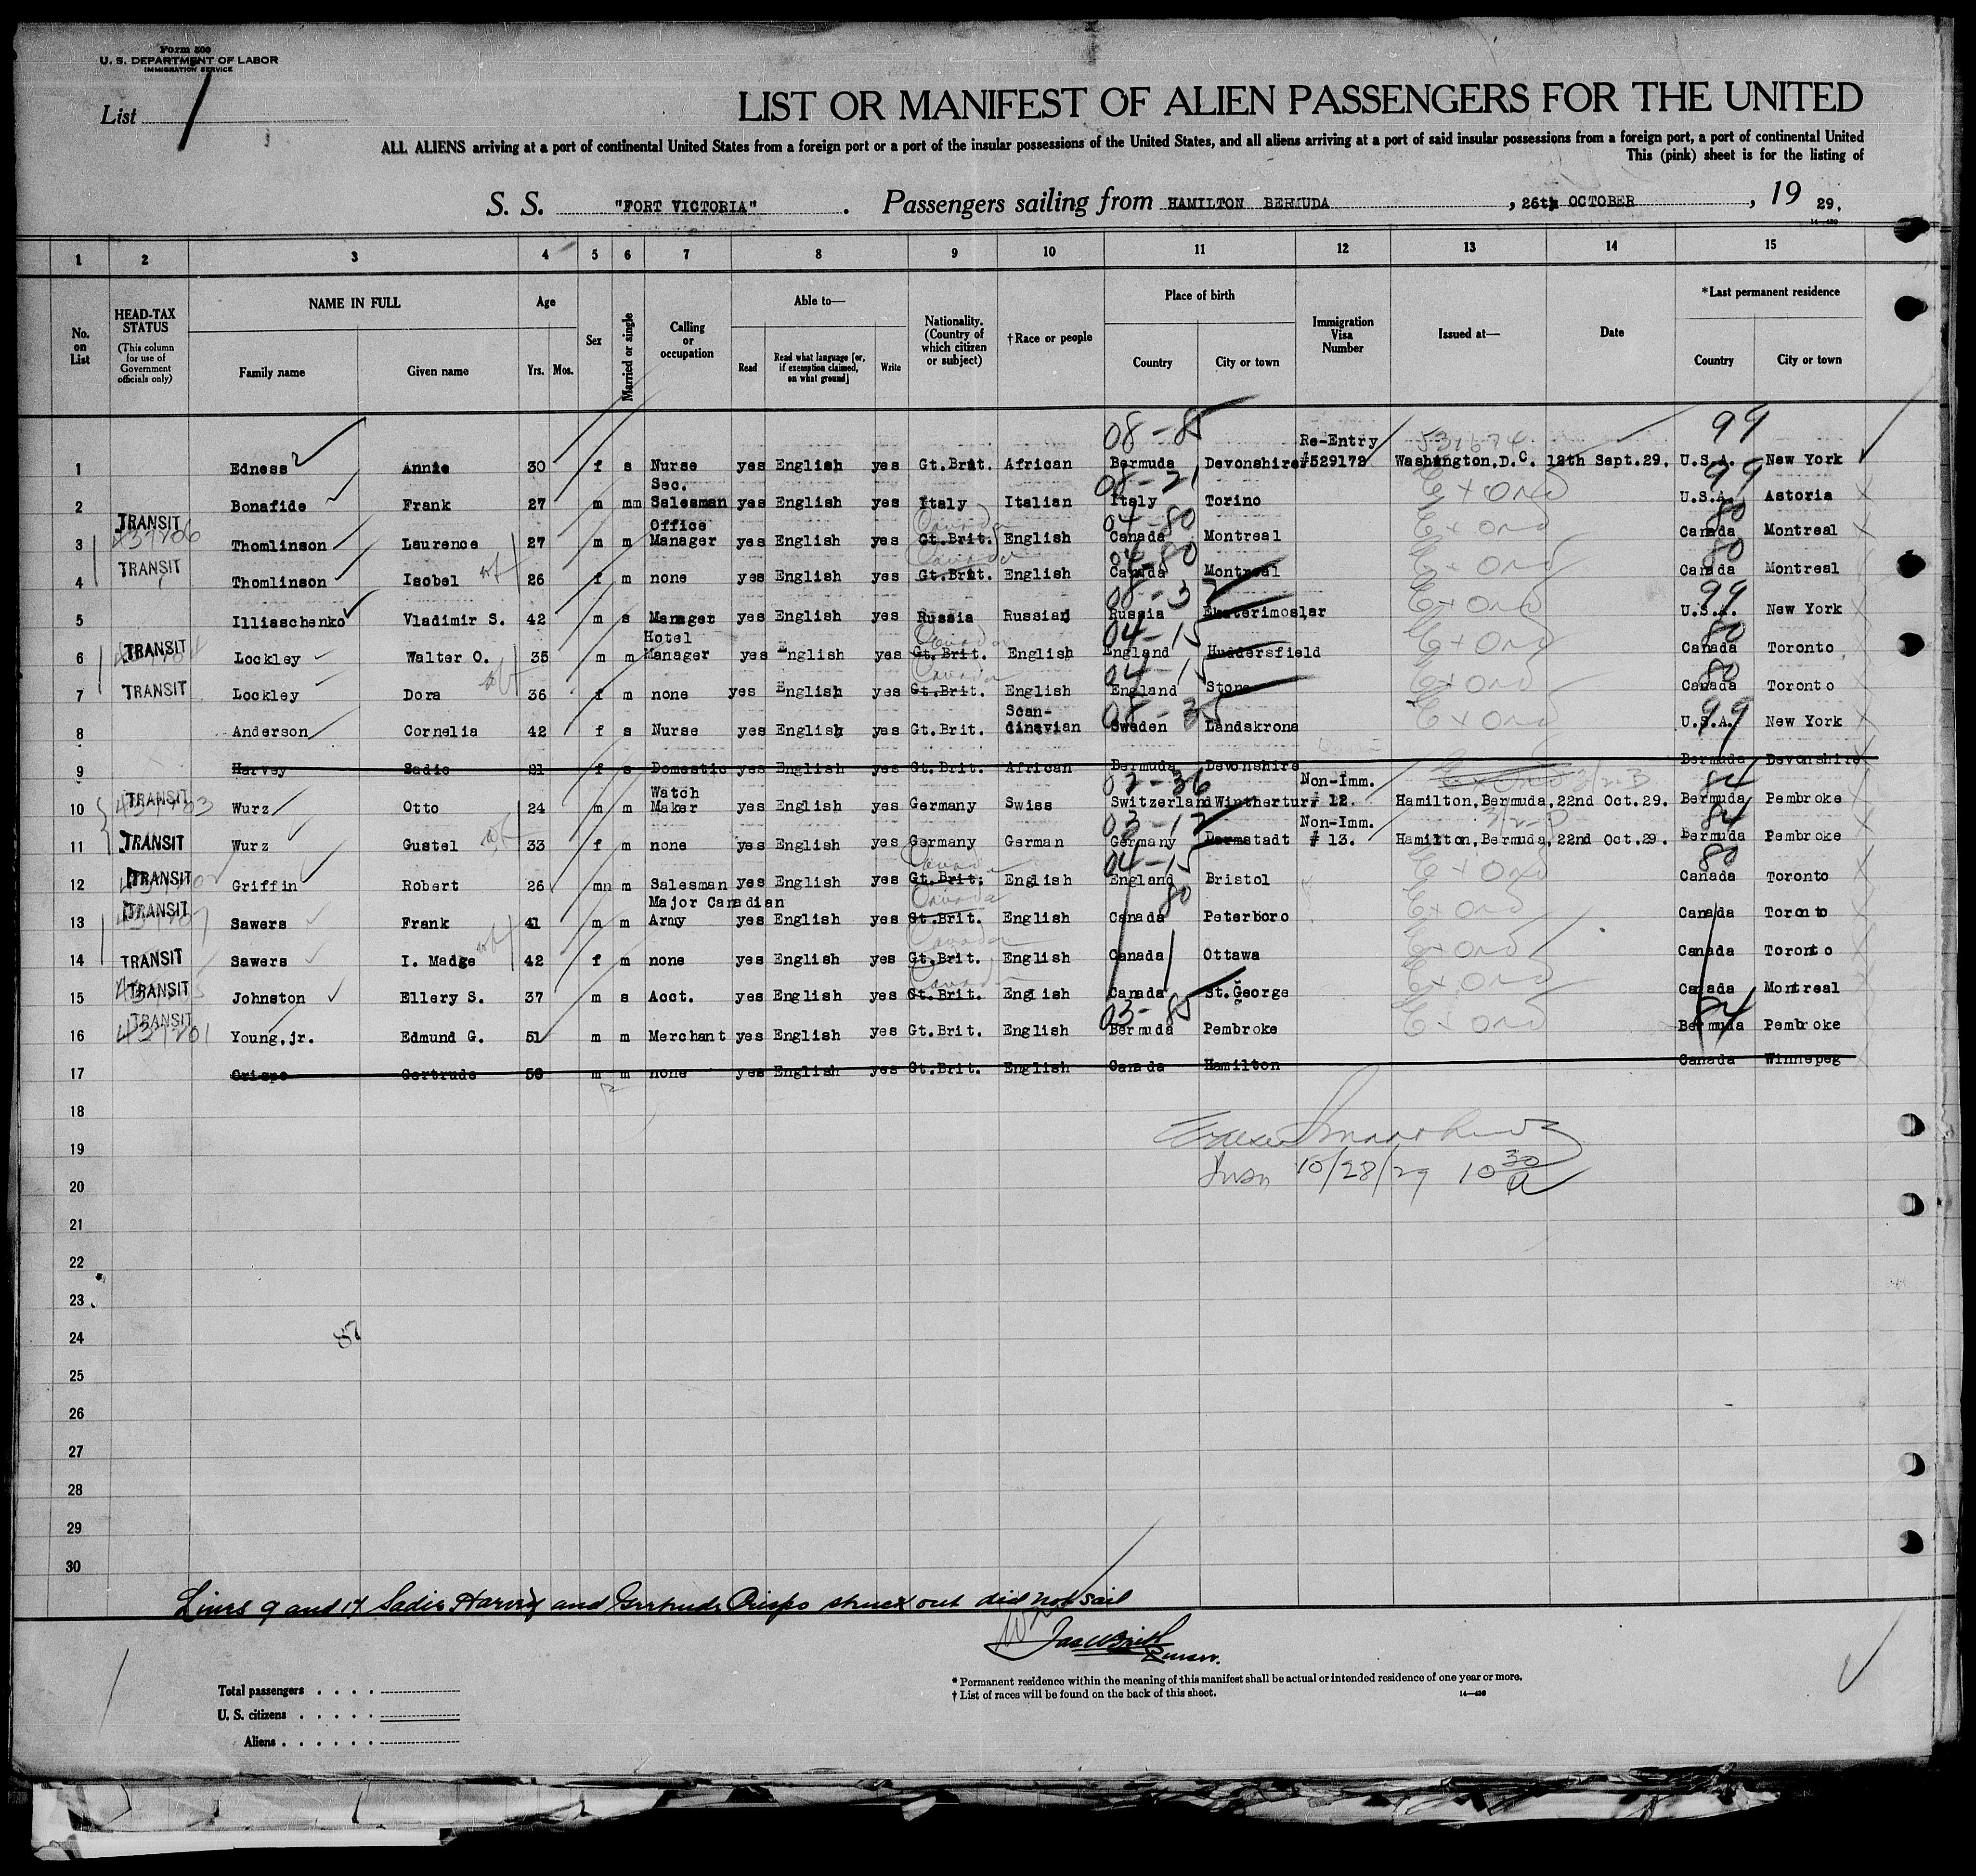 Form 500
U. S. DEPARTMENT OF LABOR
IMMIGRATION SERVICE
List 1
LIST OR MANIFEST OF ALIEN PASSENGERS FOR THE UNITED
ALL ALIENS arriving at a port of continental United States from a foreign port or a port of the insular possessions of the United States, and all aliens arriving at a port of said insular possessions from a foreign port, a port of continental United
This (pink) sheet is for the listing of
S. S. "FORT VICTORIA". Passengers sailing from HAMILTON BERMUDA, 26th OCTOBER, 19 29.
1 2 3 4 5 6 7 8 9 10 11 12 13 14 15
No. on List
HEAD-TAX STATUS (This column for use of Government officials only)
NAME IN FULL Family name Given name
Age Yrs. Mos.
Sex
Married or single
Calling or occupation
Able to— Read Read what language [or, if exemption claimed, on what ground] Write
Nationality. (Country of which citizen or subject)
†Race or people
Place of birth Country City or town
Immigration Visa Number
Issued at—
Date
*Last permanent residence Country City or town
08-85 Re-Entry 99
1 Edness Annie 30 f s Nurse yes English yes Gt.Brit. African Bermuda Devonshire #529172 Washington,D.C. 12th Sept.29. U.S.A. New York
Sec. 08-21 99
2 Bonafide Frank 27 m mm Salesman yes English yes Italy Italian Italy Torino U.S.A. Astoria
TRANSIT Office Canada 04-80 80
3 437206 Thomlinson Laurence 27 m m Manager yes English yes Gt.Brit. English Canada Montreal Canada Montreal
TRANSIT Canada 04-80 80
4 Thomlinson Isobel wf 26 f m none yes English yes Gt.Brit. English Canada Montreal Canada Montreal
08-37 99
5 Illiaschenko Vladimir S. 42 m s Manager yes English yes Russia Russian Russia Ekaterimoslar U.S.A. New York
TRANSIT Hotel Canada 04-15 80
6 Lockley Walter O. 35 m m Manager yes English yes Gt.Brit. English England Huddersfield Canada Toronto
Canada 04-15 80
7 TRANSIT Lockley Dora wf 36 f m none yes English yes Gt.Brit. English England Stone Canada Toronto
Scan- 08-35 99
8 Anderson Cornelia 42 f s Nurse yes English yes Gt.Brit. dinavian Sweden Landskrona U.S.A. New York
9 Harvey Sadie 21 f s Domestic yes English yes Gt.Brit. African Bermuda Devonshire Bermuda Devonshire
TRANSIT Watch 02-36 Non-Imm. 3/2-B 84
10 Wurz Otto 24 m m Maker yes English yes Germany Swiss Switzerland Winthertur # 12. Hamilton,Bermuda, 22nd Oct.29. Bermuda Pembroke
03-12 Non-Imm. 84
11 TRANSIT Wurz Gustel wf 33 f m none yes English yes Germany German Germany Darmstadt # 13. Hamilton,Bermuda, 22nd Oct.29. Bermuda Pembroke
TRANSIT Canada 04-15 80
12 Griffin Robert 26 mn m Salesman yes English yes Gt.Brit. English England Bristol Canada Toronto
TRANSIT Major Canadian Canada 80
13 Sawers Frank 41 m m Army yes English yes Gt.Brit. English Canada Peterboro Canada Toronto
Canada
14 TRANSIT Sawers I. Madge wf 42 f m none yes English yes Gt.Brit. English Canada Ottawa Canada Toronto
TRANSIT Canada
15 Johnston Ellery S. 37 m s Acct. yes English yes Gt.Brit. English Canada St.George Canada Montreal
TRANSIT 03-85 84
16 437201 Young,jr. Edmund G. 51 m m Merchant yes English yes Gt.Brit. English Bermuda Pembroke Bermuda Pembroke
17 Crispo Gertrude 50 m m none yes English yes Gt.Brit. English Canada Hamilton Canada Winnepeg
18
19
Insp 10/28/29 10 30 A
20
21
22
23
24
25
26
27
28
29
30
Lines 9 and 17 Sadie Harvey and Gertrude Crispo struck out did not sail
Purser.
Total passengers
U. S. citizens
Aliens
* Permanent residence within the meaning of this manifest shall be actual or intended residence of one year or more.
† List of races will be found on the back of this sheet.
14—430